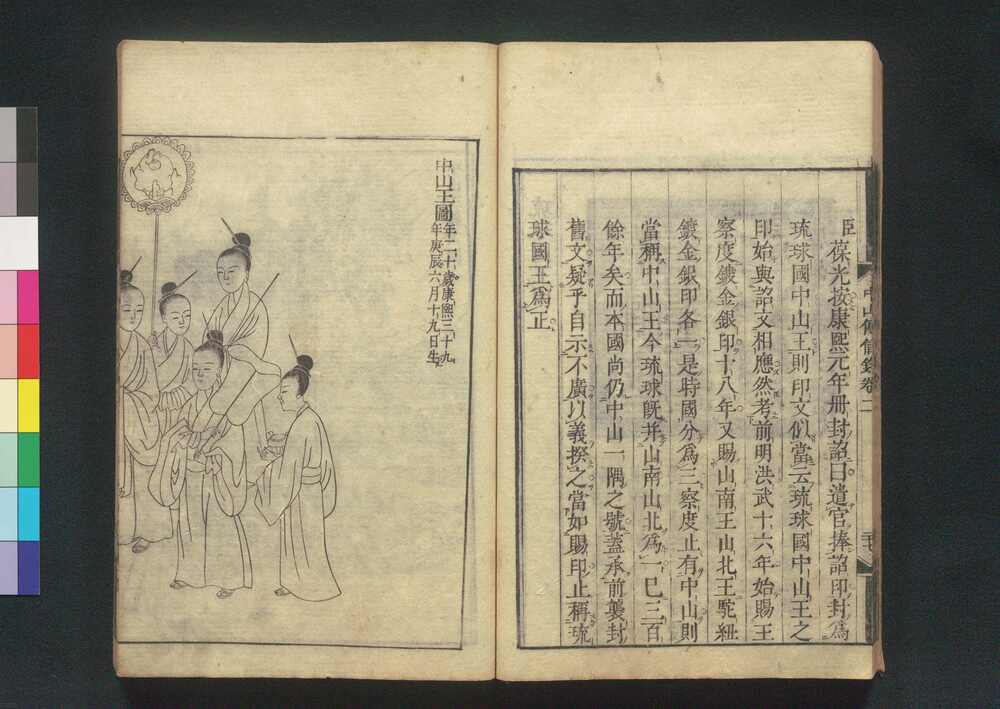 臣葆光按康熙元年册封詔曰遣官捧詔印封爲
琉球國中山王則印文似當云琉球國中山王之
印始與詔文相應然考前明洪武十六年始賜王
察度鍍金銀印十八年又賜山南王山北王駝紐
鍍金銀印各一是時國分爲三察度止有中山則
當稱中山王今琉球旣并山南山北爲一已三百
餘年矣而本國尚仍中山一隅之號蓋承前襲封
舊文疑乎自示不廣以義揆之當如賜印止稱琉
球國王爲正
中山傳信錄卷二
中山王圖
年二十歲康熙三十九
年庚辰六月十九日生